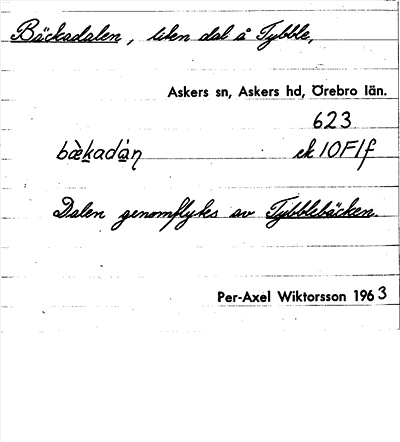 Bäckadalen, liten dal å Tybble,
Askers sn, Askers hd, Örebro län.
623
bæ̀kadàn ek 10F1f
Dalen genomflytes av Tybblebäcken.
Per-Axel Wiktorsson 1963